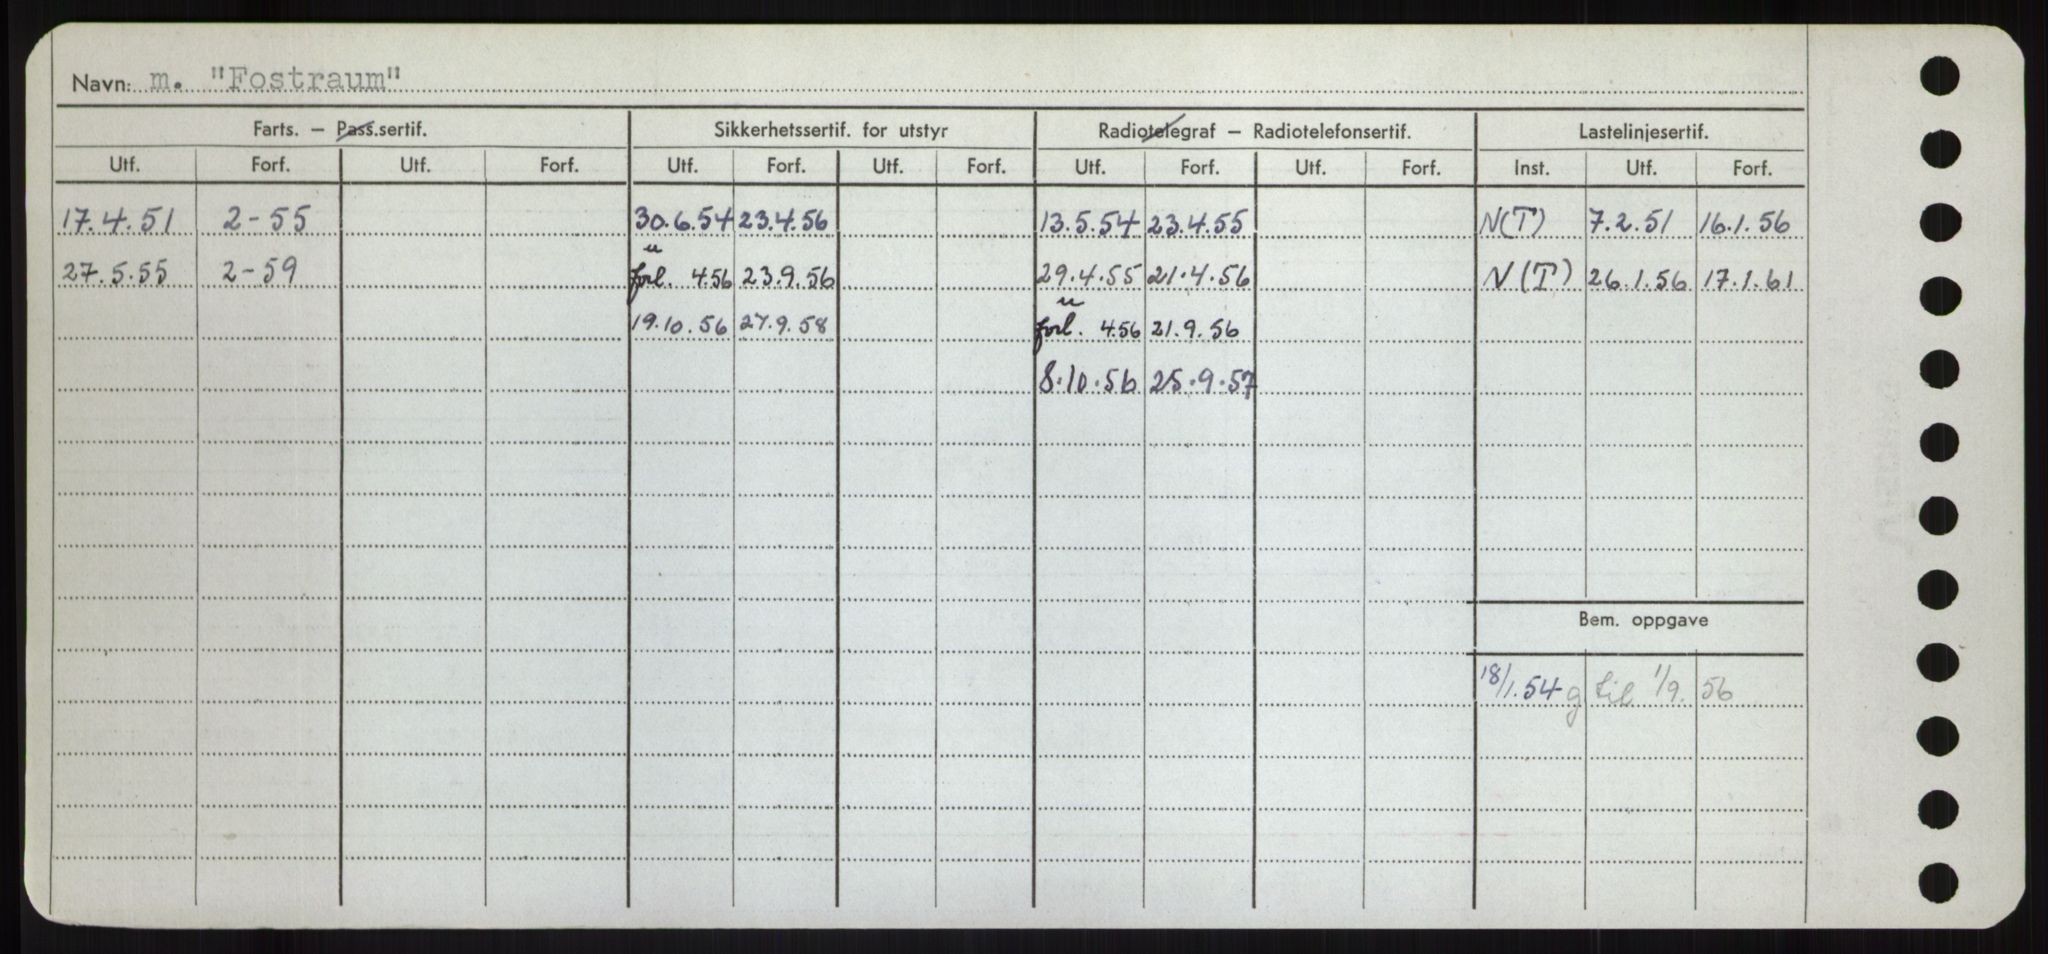 Navn: m. "Fostraum"
Farts. – Pass.sertif. Sikkerhetssertif. for utstyr Radiotelegraf – Radiotelefonsertif. Lastelinjesertif.
Utf. Forf. Utf. Forf. Utf. Forf. Utf. Forf. Utf. Forf. Utf. Forf. Inst. Utf. Forf.
17.4.51 2-55 30.6.54 23.4.56 13.5.54 23.4.55 N(T) 7.2.51 16.1.56
27.5.55 2-59 forl. 4.56 23.9.56 29.4.55 21.4.56 N(T) 26.1.56 17.1.61
19.10.56 27.9.58 forl. 4.56 21.9.56
8.10.56 25.9.57
Bem. oppgave
18/1.54 g til 1/9. 56